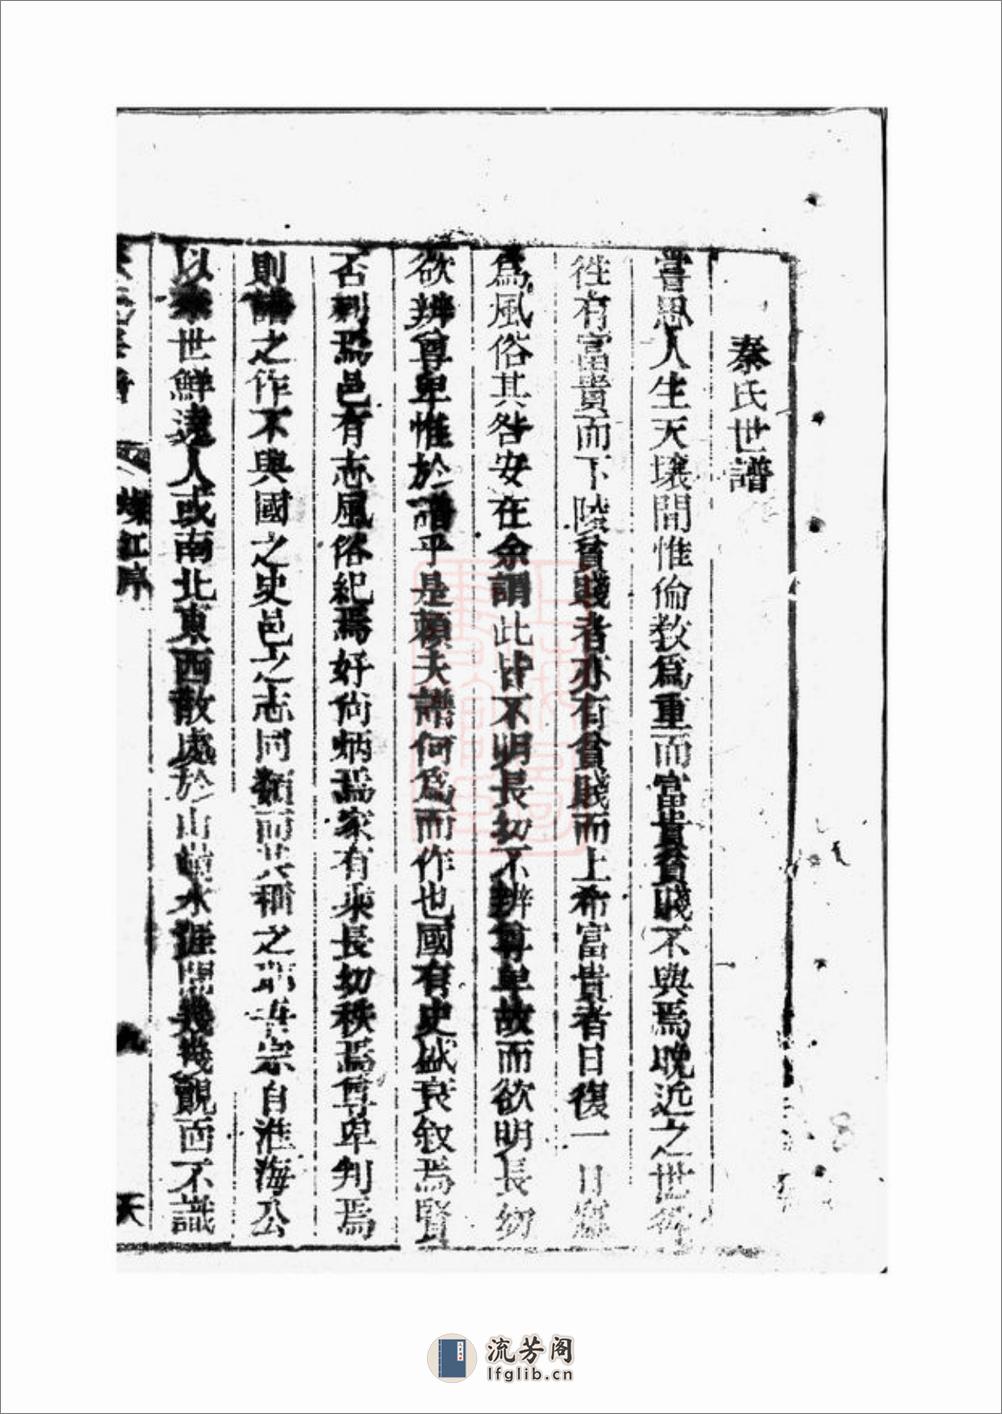 秦氏世譜
嘗思人生天壤間惟倫教為重而富貴貧賤不與焉晚近之世
徃有富貴而下陵貧賤者亦有貧賤而上希富貴者日復一日
為風俗其咎安在余謂此皆不明長幼不辨尊卑故而欲明長幼
欲辨尊卑惟於譜乎是賴夫譜何為而作也國有史盛衰叙焉賢
否判焉邑有志風俗紀焉好尚炳焉家有乘長幼秩焉尊卑判焉
則譜之作不與國之史邑之志同類而共稱之耶吾宗自淮海公
以來世鮮達人或南北東西散處於山巔水涯間幾幾覿面不識
流芳阁
lfglib.cn